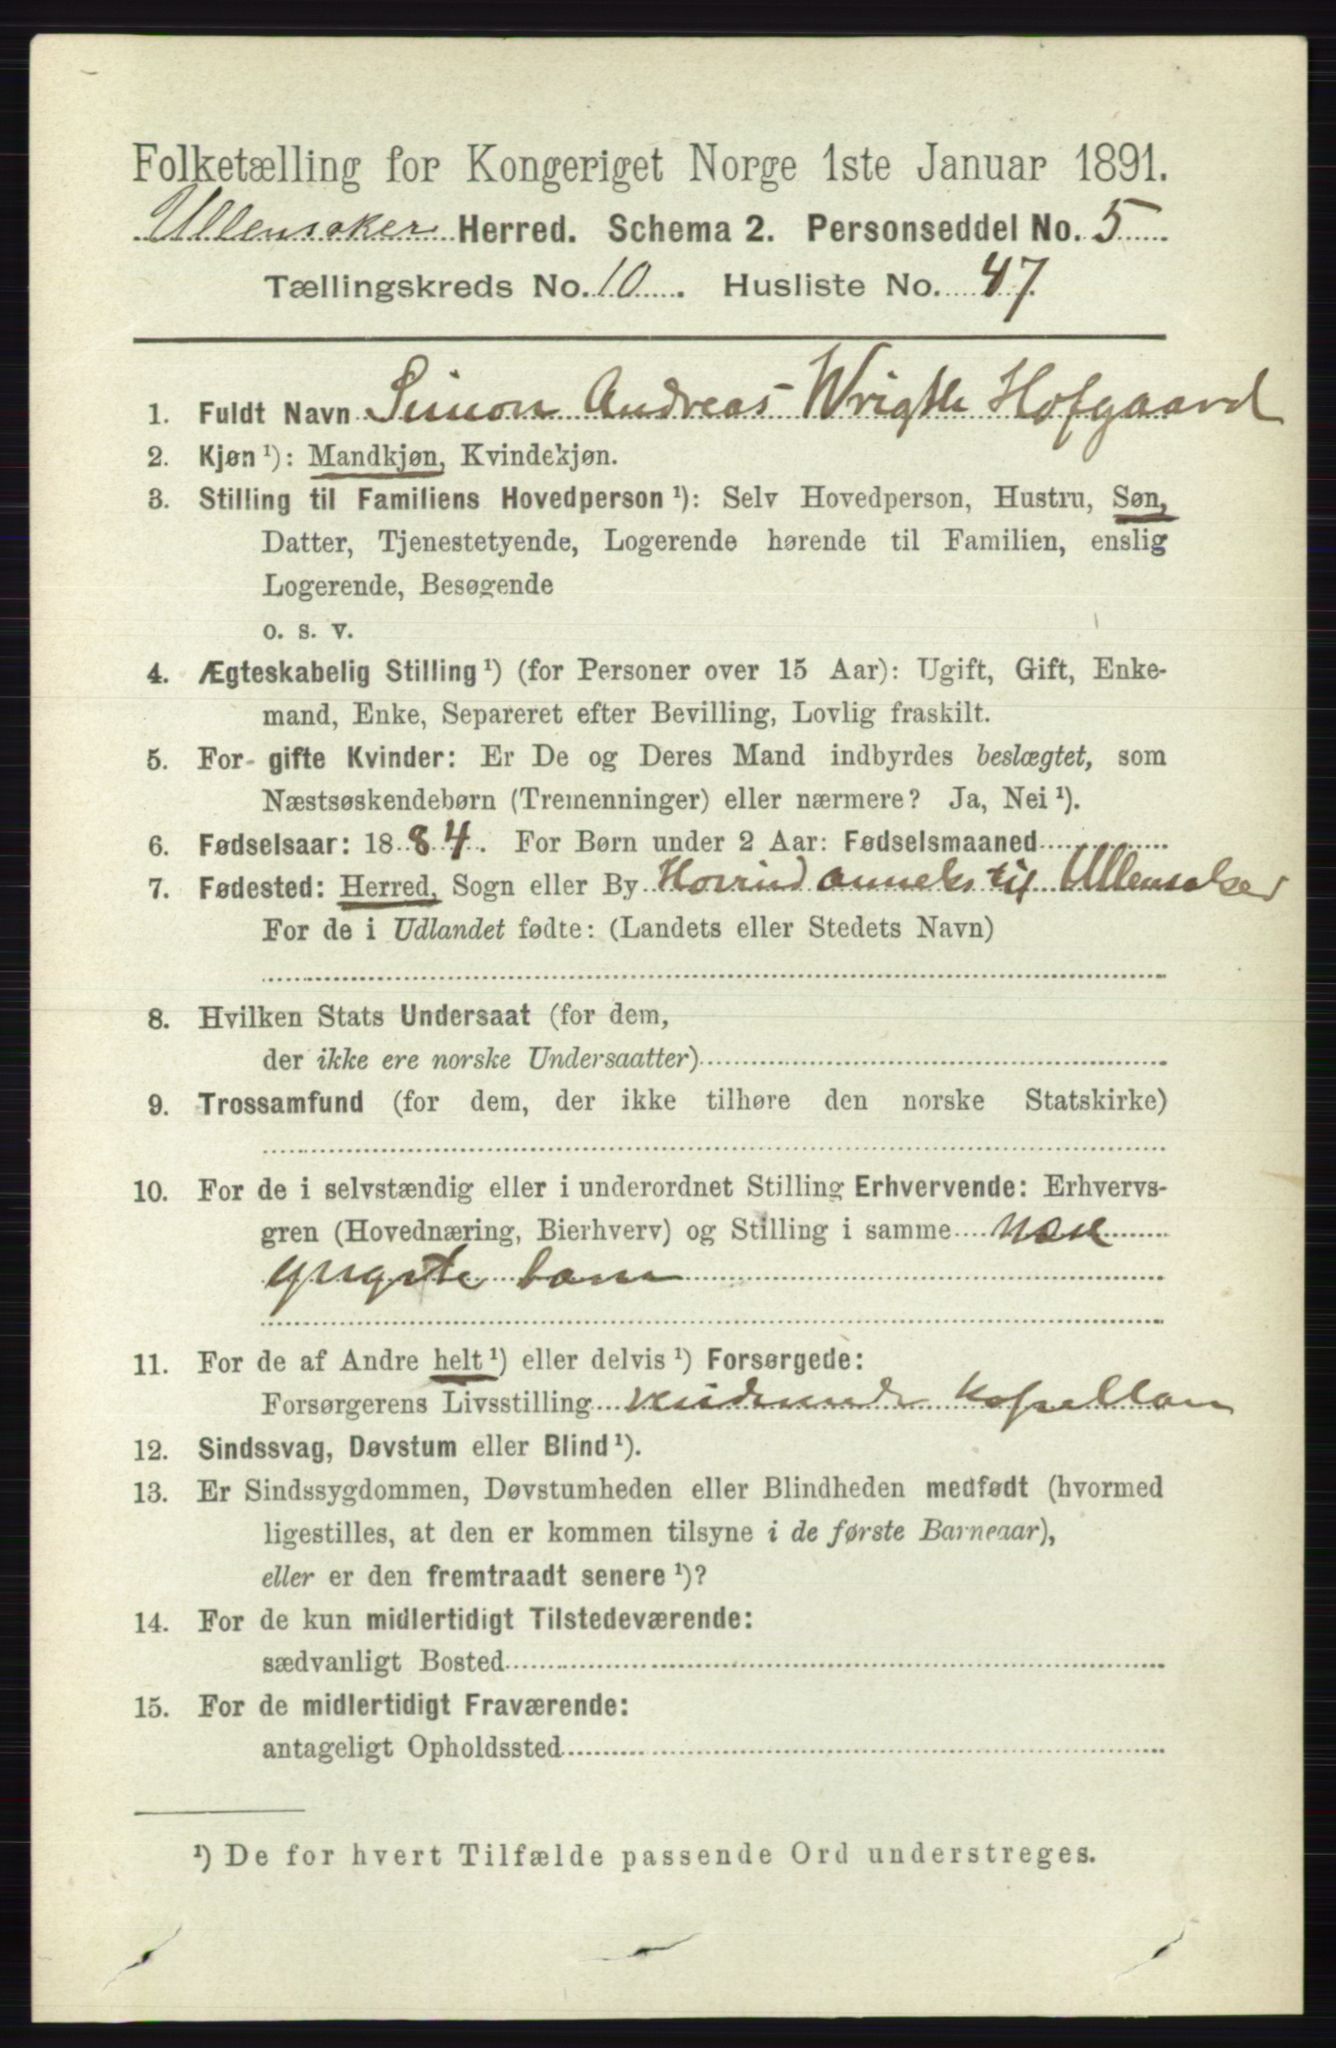 Folketælling for Kongeriget Norge 1ste Januar 1891.
Ullensaker Herred. Schema 2. Personseddel No. 5
Tællingskreds No. 10. Husliste No. 47
1. Fuldt Navn Simon Andreas Hofgaard
2. Kjøn ¹): Mandkjøn, Kvindekjøn.
3. Stilling til Familiens Hovedperson ¹): Selv Hovedperson, Hustru, Søn,
Datter, Tjenestetyende, Logerende hørende til Familien, enslig
Logerende, Besøgende
o. s. v.
4. Ægteskabelig Stilling ¹) (for Personer over 15 Aar): Ugift, Gift, Enke-
mand, Enke, Separeret efter Bevilling, Lovlig fraskilt.
5. For gifte Kvinder: Er De og Deres Mand indbyrdes beslægtet, som
Næstsøskendebørn (Tremenninger) eller nærmere? Ja, Nei ¹).
6. Fødselsaar: 1884. For Børn under 2 Aar: Fødselsmaaned
7. Fødested: Herred, Sogn eller By anneks til Ullensaker
For de i Udlandet fødte: (Landets eller Stedets Navn)
8. Hvilken Stats Undersaat (for dem,
der ikke ere norske Undersaatter)
9. Trossamfund (for dem, der ikke tilhøre den norske Statskirke)
10. For de i selvstændig eller i underordnet Stilling Erhvervende: Erhvervs-
gren (Hovednæring, Bierhverv) og Stilling i samme
yngste
11. For de af Andre helt ¹) eller delvis ¹) Forsørgede:
Forsørgerens Livsstilling residerende kapellan
12. Sindssvag, Døvstum eller Blind ¹).
13. Er Sindssygdommen, Døvstumheden eller Blindheden medfødt (hvormed
ligestilles, at den er kommen tilsyne i de første Barneaar),
eller er den fremtraadt senere ¹)?
14. For de kun midlertidigt Tilstedeværende:
sædvanligt Bosted
15. For de midlertidigt Fraværende:
antageligt Opholdssted
¹) De for hvert Tilfælde passende Ord understreges.